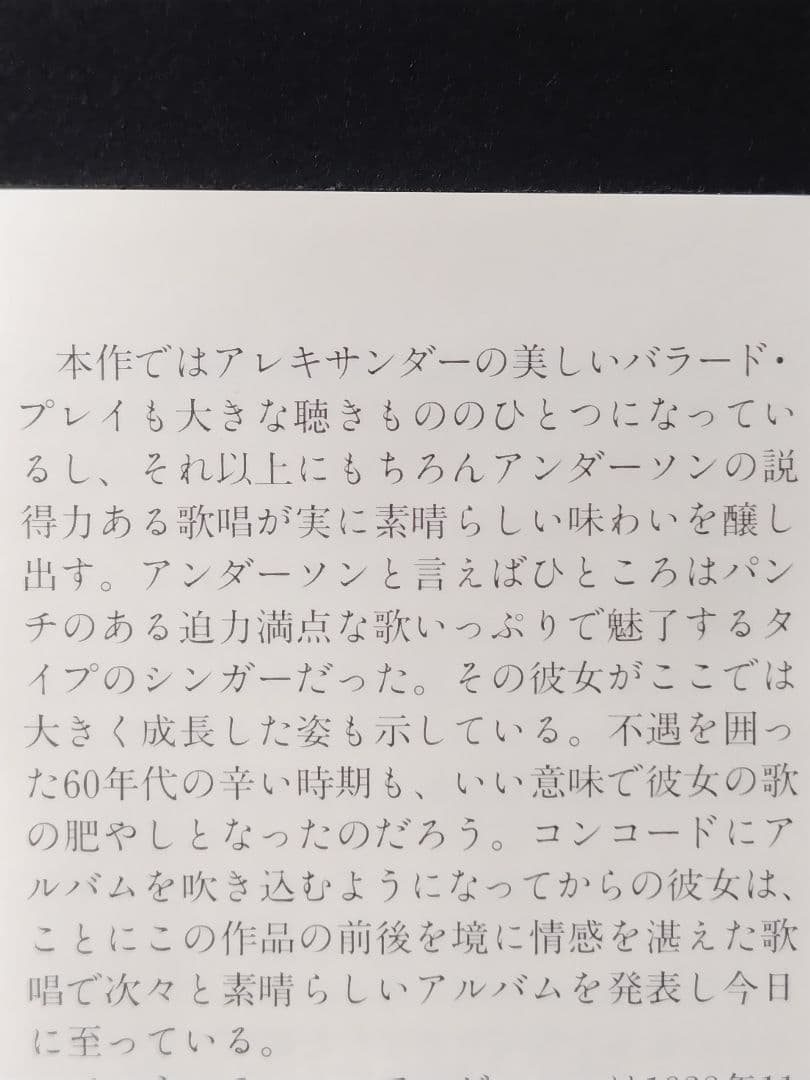 本作ではアレキサンダーの美しいバラード・
プレイも大きな聴きもののひとつになってい
るし、それ以上にもちろんアンダーソンの説
得力ある歌唱が実に素晴らしい味わいを醸し
出す。アンダーソンと言えばひところはパン
チのある迫力満点な歌いっぷりで魅了するタ
イプのシンガーだった。その彼女がここでは
大きく成長した姿も示している。不遇を囲っ
た60年代の辛い時期も、いい意味で彼女の歌
の肥やしとなったのだろう。コンコードにア
ルバムを吹き込むようになってからの彼女は、
ことにこの作品の前後を境に情感を湛えた歌
唱で次々と素晴らしいアルバムを発表し今日
に至っている。